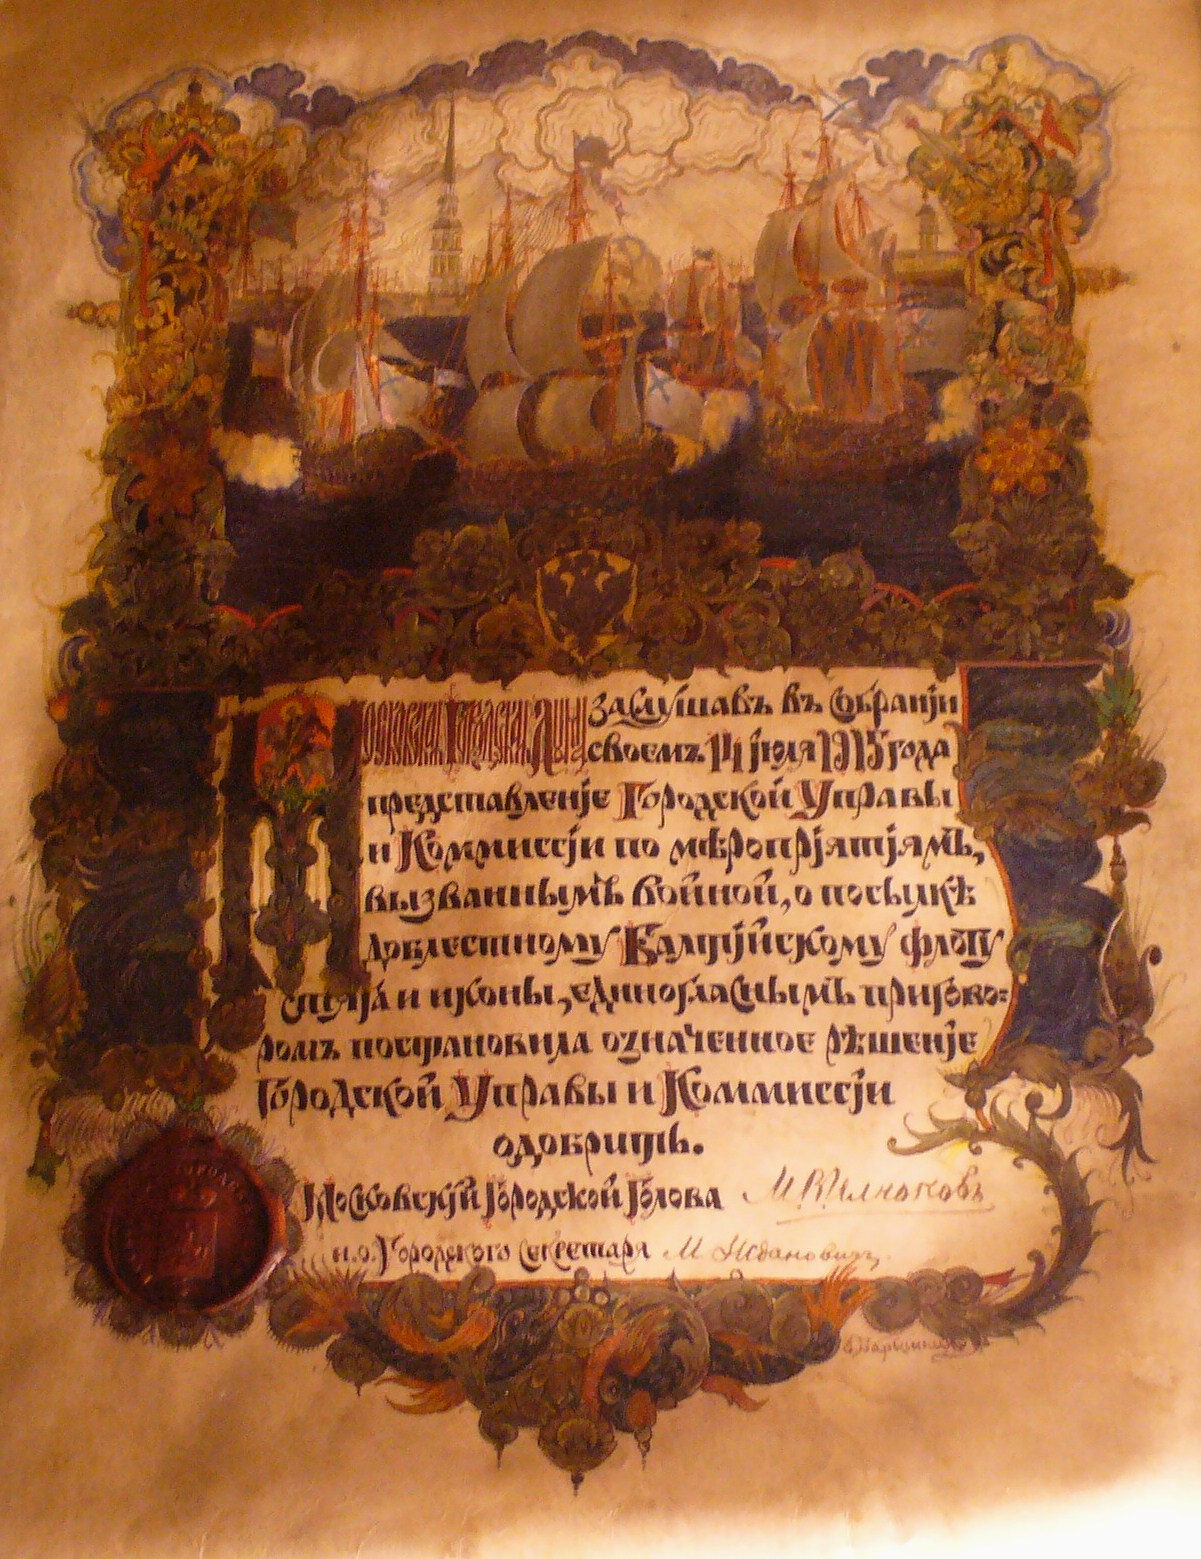 Московская Городская Дума, заслушавъ въ Собранiи
своемъ 14 iюля 1915 года
представленiе Городской Управы
и Коммиссiи по мѣропрiятiямъ,
вызваннымъ войной, о посылкѣ
доблестному Балтiйскому флоту
стяга и иконы, единогласнымъ пригово=
ромъ постановила означенное рѣшенiе
Городской Управы и Коммиссiи
одобрить.
Московскiй Городской Голова М. Челноковъ
и.о. Городского Секретаря М. Ждановичъ